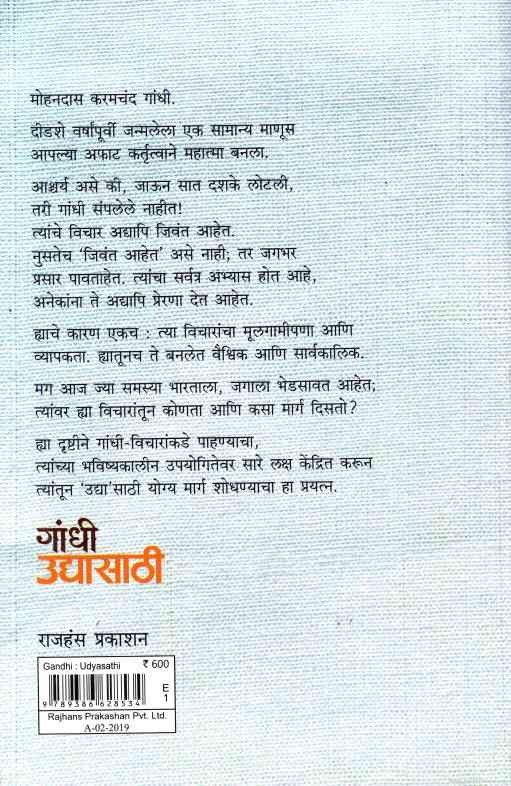 मोहनदास करमचंद गांधी.
दीडशे वर्षांपूर्वी जन्मलेला एक सामान्य माणूस
आपल्या अफाट कर्तृत्वाने महात्मा बनला.
आश्चर्य असे की, जाऊन सात दशके लोटली,
तरी गांधी संपलेले नाहीत!
त्यांचे विचार अद्यापि जिवंत आहेत.
नुसतेच 'जिवंत आहेत' असे नाही; तर जगभर
प्रसार पावताहेत. त्यांचा सर्वत्र अभ्यास होत आहे,
अनेकांना ते अद्यापि प्रेरणा देत आहेत.
ह्याचे कारण एकच : त्या विचारांचा मूलगामीपणा आणि
व्यापकता. ह्यातूनच ते बनलेत वैश्विक आणि सार्वकालिक.
मग आज ज्या समस्या भारताला, जगाला भेडसावत आहेत;
त्यांवर ह्या विचारांतून कोणता आणि कसा मार्ग दिसतो?
ह्या दृष्टीने गांधी-विचारांकडे पाहण्याचा,
त्यांच्या भविष्यकालीन उपयोगितेवर सारे लक्ष केंद्रित करून
त्यांतून 'उद्या'साठी योग्य मार्ग शोधण्याचा हा प्रयत्न.
गांधी
उद्यासाठी
राजहंस प्रकाशन
Gandhi : Udyasathi ₹ 600
E
1
9 789386 628534
Rajhans Prakashan Pvt. Ltd.
A-02-2019